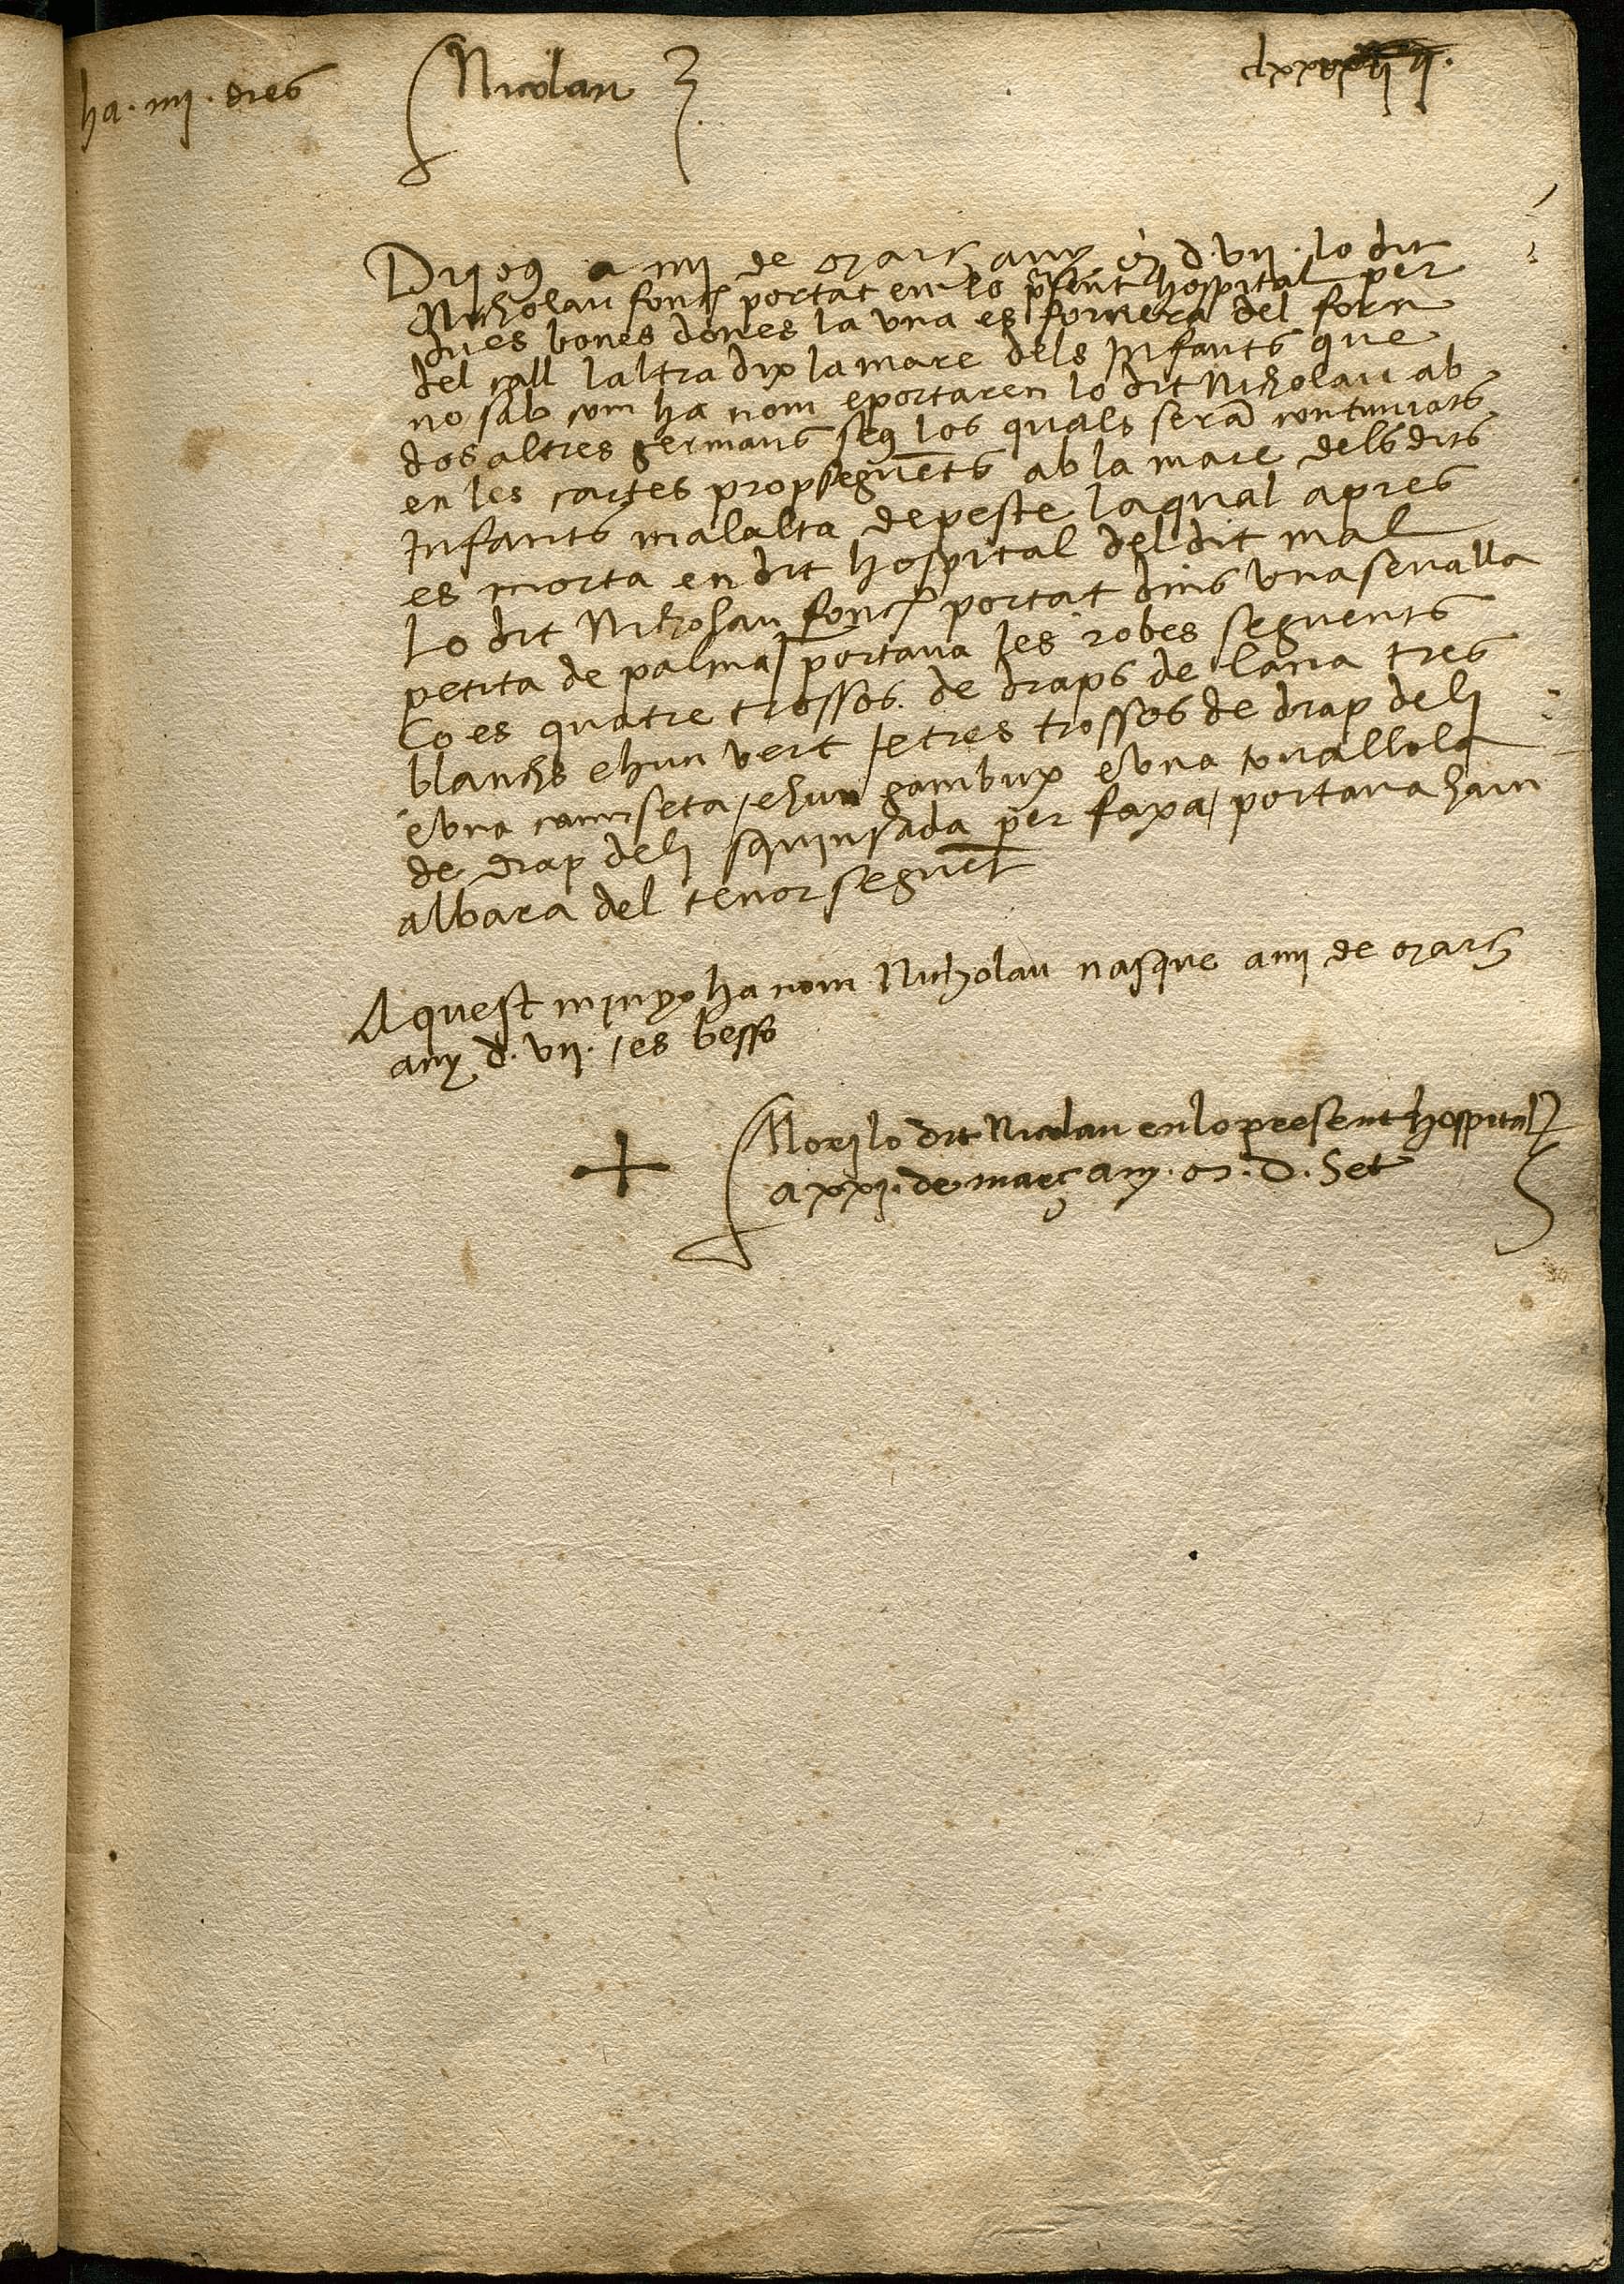 ha . iiij . dies
Nicolau
Dijous a iiij de març any M d . vij . lo dit
Nicholau fonch portat en lo present hospital per
dues bones dones la una es fornera del forn
del call laltra dix la mare dels Infants que
no sab com ha nom eportaren lo dit Nicholau ab
dos altres germans seus los quals seran continuats
en les cartes propseguents ab la mare dels dits
Infants malalta de peste laqual apres
es morta en dit hospital del dit mal
Lo dit Nicholau fonch portat dins una senalla
petita de palma / portava les robes seguents
ço es quatre trossos de draps de lana tres
blanchs e hun vert / e tres trossos de drap de li
e una camiseta / e hun gambux e una tovallola
de drap de li squinsada per faxa / portava hun
albara del tenor seguent
Aquest minyo ha nom Nicholau nasque a iiij de març
any d . vij . / es besso
Mori lo dit Nicolau en lo present hospital
a xxj . de març any . M . D . Set